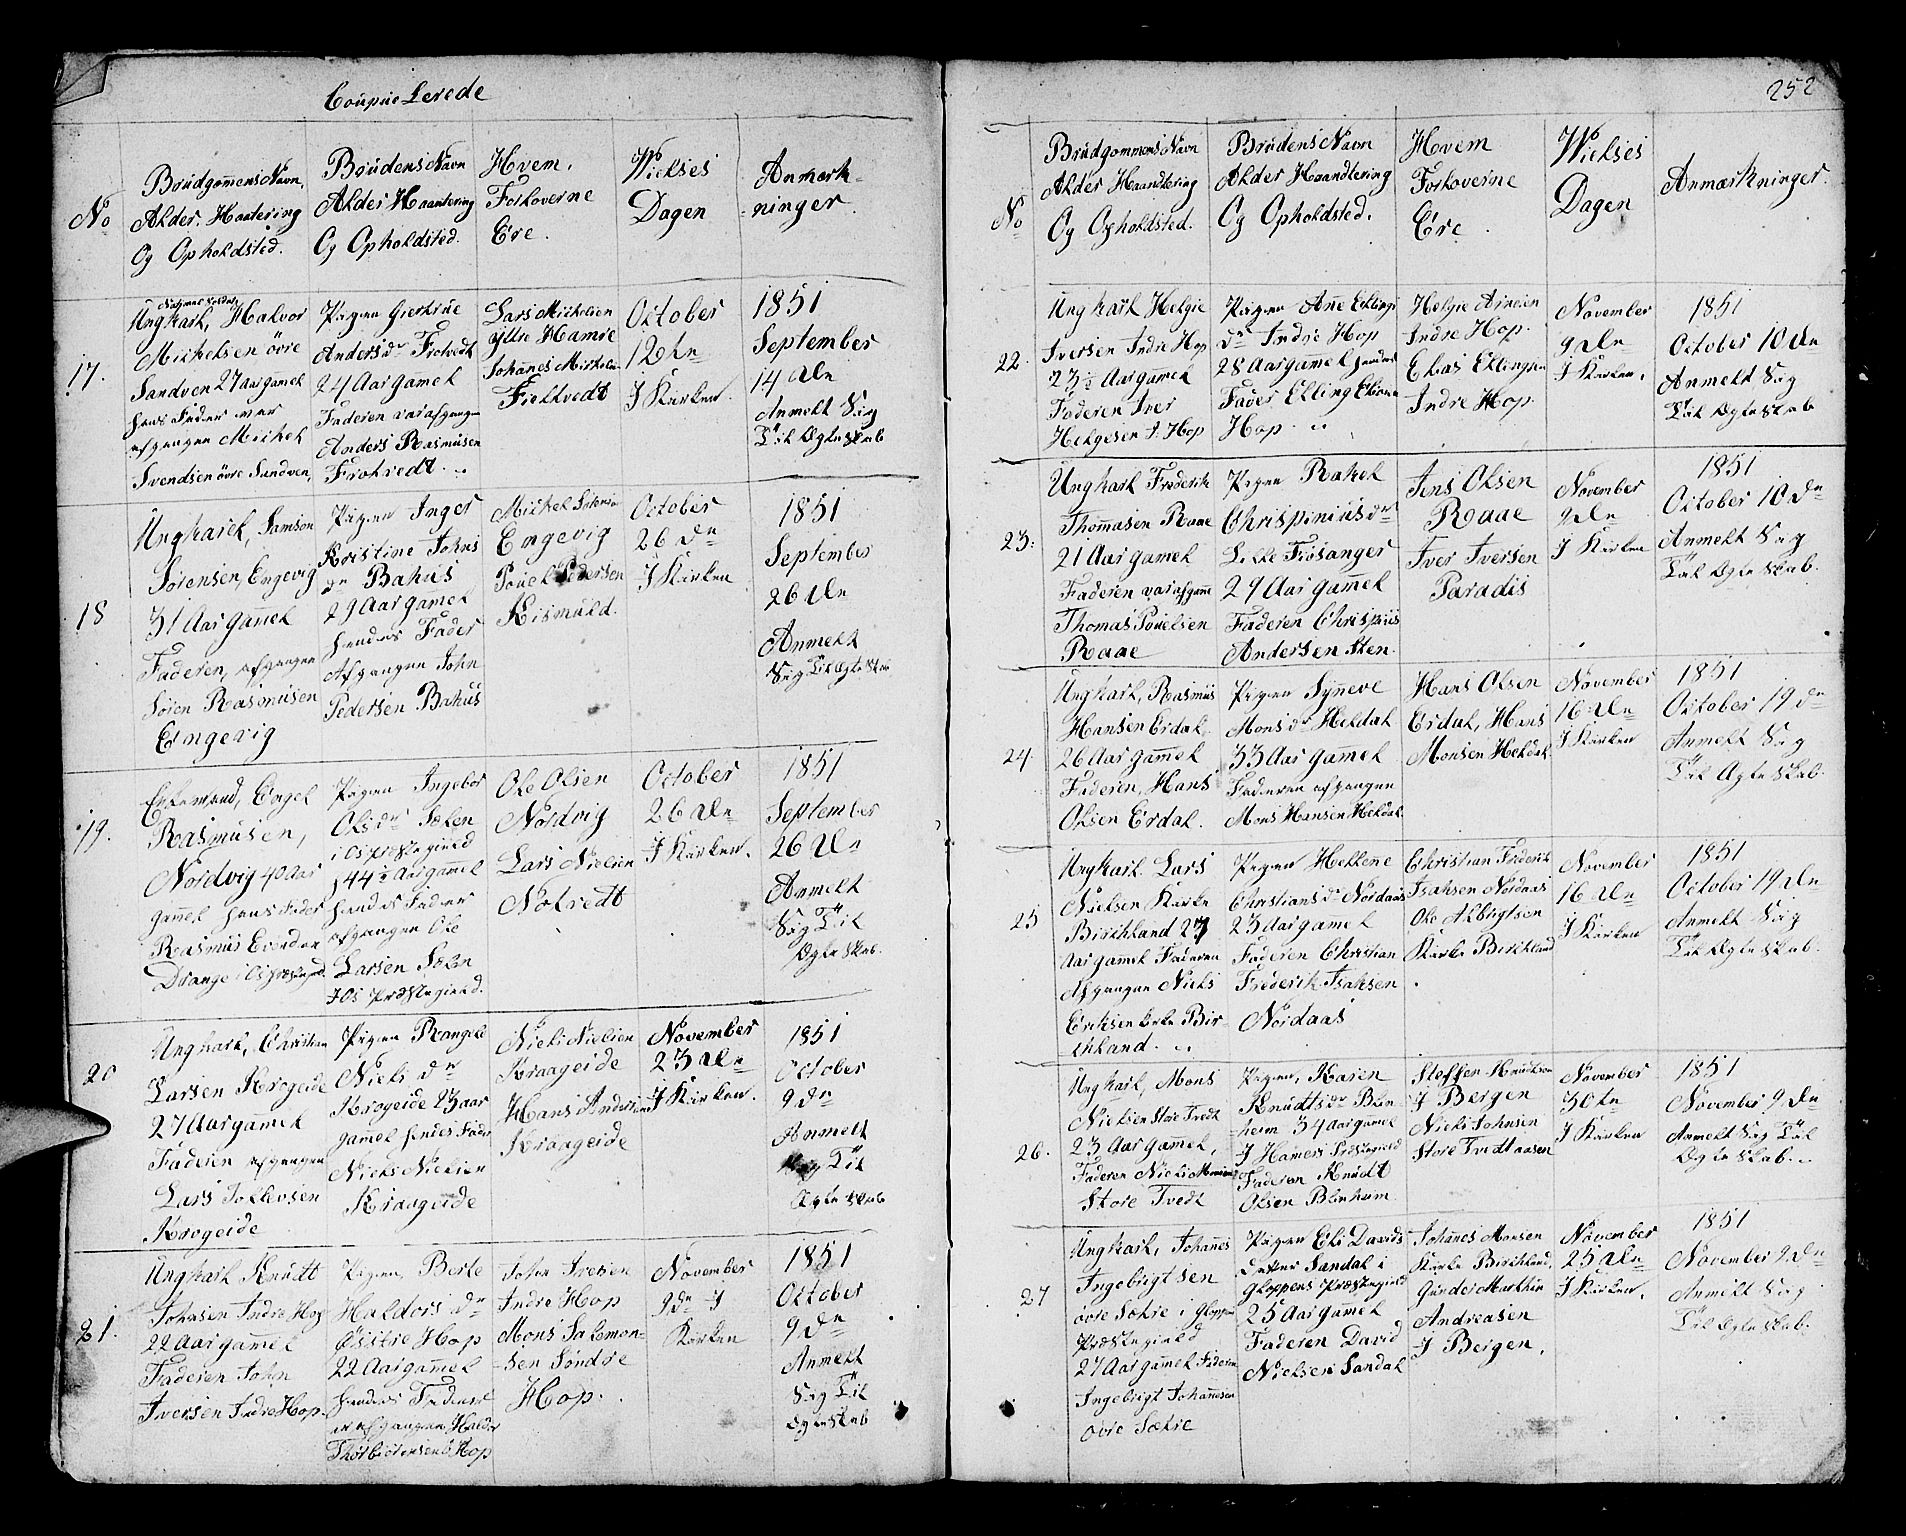 Coupue Lerede
No
Brudgommens Navn,
Alder. Haatering
Og Opholdsted.
Brudens Navn
Alder Haantering
Og Opholdsted.
Hvem,
Forloverne
Ere.
Wielses
Dagen
Anmærk-
ninger.
17.
Ungkarl, Halvor
Michelsen övre
Sandven 27 Aar gamel
hans Fader var
afgangen Michel
Svendsen övre Sandven,
Pigen Giertrue
Anders dr
24 Aar gamel
Faderen var afgangen
Anders Rasmusen
Lars Michelsen
yttre Hamre
Johanes
October
12te
I Kirken.
1851
September
14 de
Anmelt Sig
Til Ægteskab
18
Ungkarel, Samson
Sörensen, Engevig
31 Aar gammel
Faderen, afgangen
Sören Rasmusen
Engevig
Pigen Inger
Kristine Johns
dr Bahus
29 Aar gamel
hendes Fader
Afgangen John
Pedersen Bahus
Michel
Engevig
Pouel Pedersen
Kismuld.
October
26 de
I Kirken
1851
September
26 de
Anmelt
Sig Til Ægteskab
19.
Enkemand, Engel
Rasmusen,
Nordvig 40 Aar
gamel hans Fader
Rasmus
Drange i Os præstegield.
Pigen Ingebor
Ols dr Søken
i Os præstegield
44 1/2 Aar gammel
hendes Fader
afgangen Ole
Larsen Søken
I Os Præstegield.
Ole Olsen
Nordvig
Lars Nielsen
October
26 de
I Kirken.
1851
September
26 de
Anmelt
Sig Til
Ægteskab.
20
Ungkarl, Christian
Larsen Krogeide
27 Aar gammel
Faderen afgangen
Lars
Krogeide
Pigen Rangele
Niels dr
Krogeide 23 aar
gamel hendes Fader
Niels Nielsen
Kraageide
Niels Nielsen
Kraageide
Hans Andersen
Kraageide
November
23 de
I Kirken.
1851
October
9 de
Anmelt
Sig Til
Ægteskab
21.
Ungkarl Knudt
Johnsen Indre Hop
22 Aar gammel
Faderen John
Iversen Indre Hop.
Pigen, Berte
Haldors dr
Øsstre Hop
22 Aar gammel
hendes Fader
er afgangen Haldor
Thorbiörnsen ö Hop
John Iversen
Indre Hop
Mons Salemon-
sen Söndre
Hop.
November
9 de I
Kirken
1851
October
9 de
Anmelt
Sig Til
Egteskab
252
No
Brudgommens Navn
Alder Haandtering
Og Opholdsted.
Brudens Navn
Alder Haandtering
Og Opholdsted.
Hvem
Forloverne
Ere.
Wielses
Dagen
Anmærkninger.
22.
Ungkarl Helgie
Iversen Indre Hop
23 1/2 Aar gamel
Faderen Iver
Helgesen I. Hop
Pigen Ane Ellings
dr Indre Hop
28 Aar gamel hendes
Fader Elling
Hop.
Helgie Arnesen
Indre Hop.
Elias Ellingsen
Indre Hop
November
9 de
I Kirken.
1851
October 10 de
Anmelt Sig
Til Ægteskab
23.
Ungkarl Frederik
Thomasen Raae
21 Aar gamel
Faderen var afgamm
Thomas Pouelsen
Raae
Pigen Rakel
Chrispinius dr
Lille Frösanger
29 Aar gammel
Faderen Chrispius
Andersen Sten.
Jens Olsen
Raae
Iver Iversen
Paradis
November
9 de
I Kirken
1851
October 10 de
Anmelt Sig
Til Ægteskab.
24.
Ungkarl, Rasmus
Hansen Erdal,
26 Aar gammel
Faderen, Hans
Olsen Erdal.
Pigen Synneve
Mons dr Heldal
33 Aar gamel
Faderen afgangen
Mons Hansen Heldal
Hans Olsen
Erdal, Hans
Monsen Heldal
November
16 de
I Kirken
1851
October 19 de
Anmelt Sig
Til Ægteskab.
25
Ungkarl. Lars
Nielsen Kirke
Birchland 27
Aar gammel Faderen
Afgangen Niels
Eriksen kirke Bir-
chland.
Pigen Hellene
Christians dr Nordaas
23 Aar gamel
Faderen Christian
Frederik Isaksen
Nordaas
Christian Frederik
Isaksen Nordaas
Ole Albrigtsen
Kirke Birchland
November
16 de
I Kirken
1851
October 19 de
Anmelt Sig
Til Ægteskab.
26.
Ungkarl, Mons
Nielsen Store Tvedt
23 Aar gammel,
Faderen Niels Monsen
Store Tvedt
Pigen, Karen
Knudts dr Blin
heim 34 Aar gamel
I Hamers Præstegield
Faderen Knudt
Olsen Blinheim
Steffen Knudtson
I Bergen
Niels Johnsen
Store Tvedt aasen
November
30 te
I Kirken
1851
November 9 de
Anmelt Sig Til
Ægteskab.
27
Ungkarl, Johannes
Ingebrigtsen
övre Sækre i Gloppen
Præstegield
27 Aar gammel Faderen
Ingebrigt Johannesen
Övre Sækre
Pigen Eli Davids
datter Sandal i
Gloppens Præstegield
25 Aar gamel
Faderen David
Nielsen Sandal
Johannes Monsen
Kirke Birchland,
Gunder Mathias
Andreasen
I Bergen.
November
25 de
I Kirken,
1851
November 9 de
Anmelt Sig
Til Ægteskab.